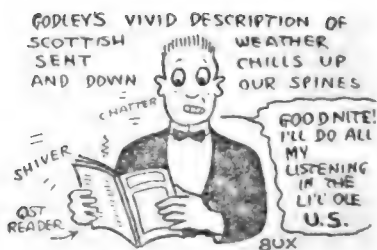 GODLEY'S VIVID DESCRIPTION OF
SCOTTISH WEATHER
SENT CHILLS UP
AND DOWN OUR SPINES
CHATTER
SHIVER
QST
READER
GOODNITE!
I'LL DO ALL
MY
LISTENING
IN THE
LI'L' OLE
U.S.
BUX